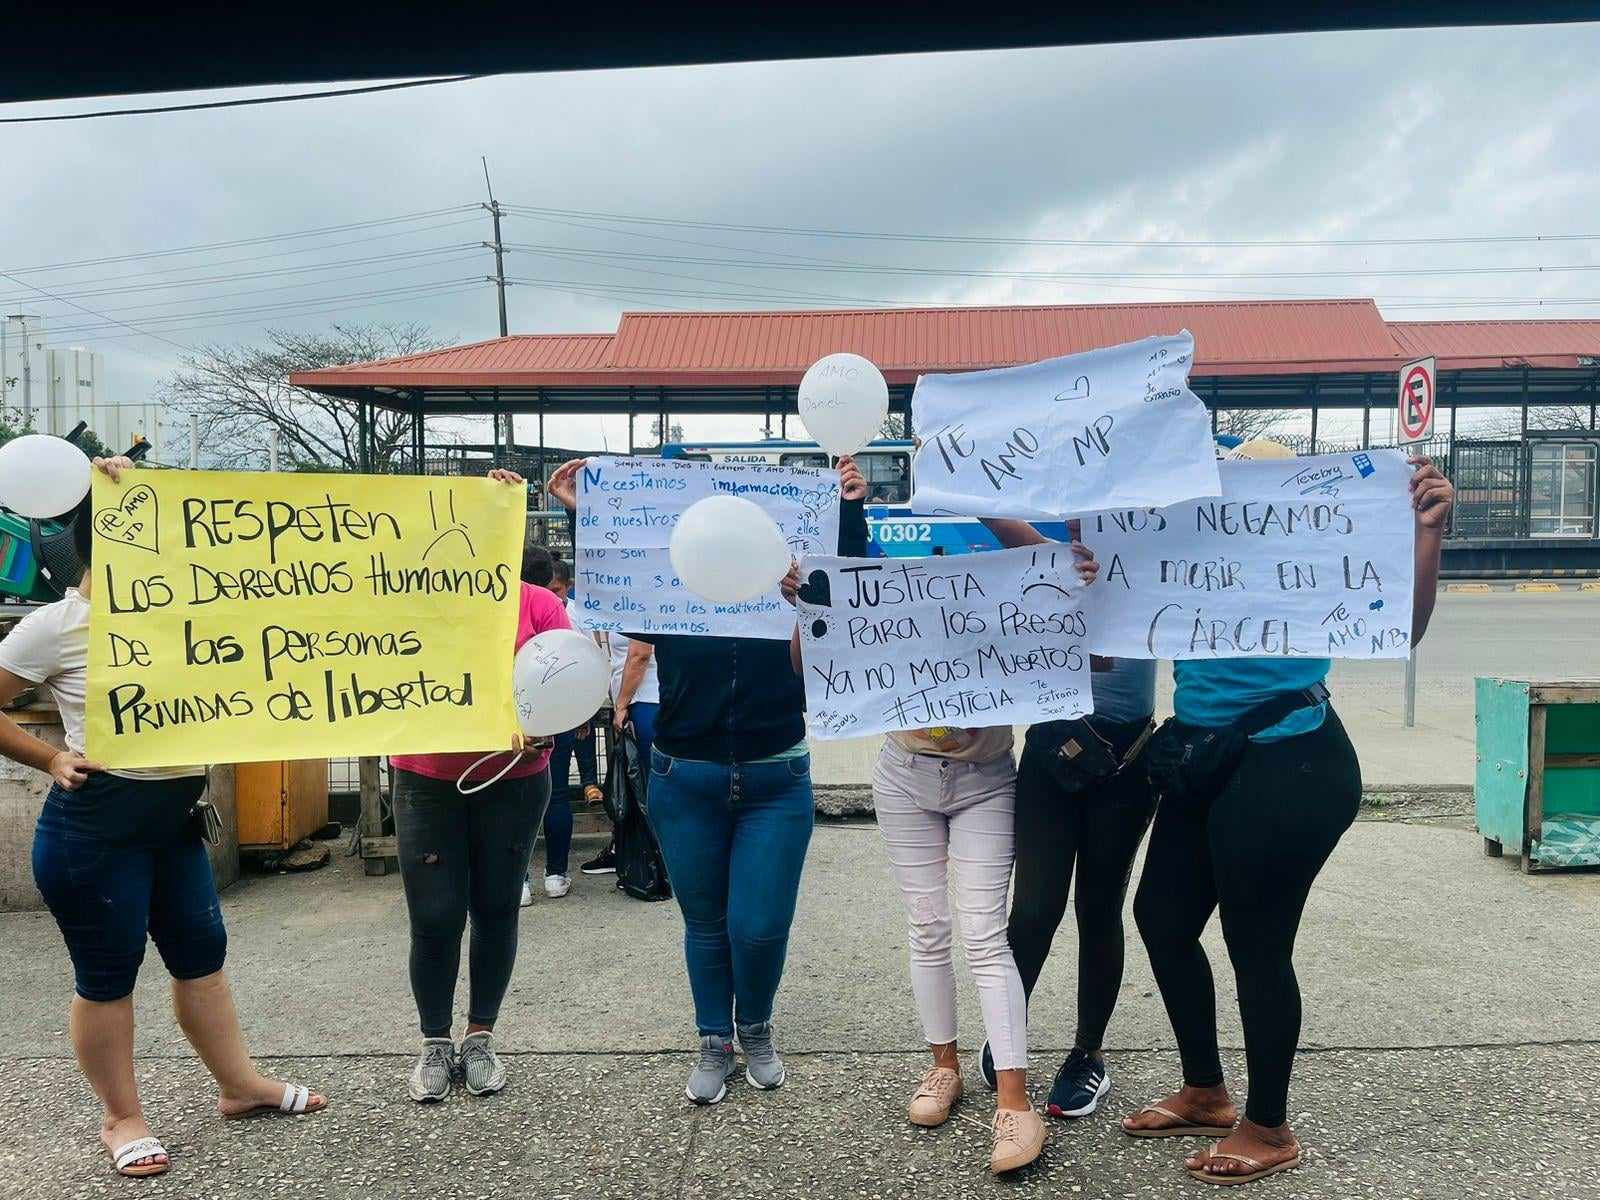 TE AMO
JD
RESPETEN
LOS DERECHOS HUMANOS
DE las personas
PRIVADAS de libertad
Siempre con Dios Mi Guerrero TE AMO Daniel
Necesitamos información
de nuestros
ellos
no son
TE
tienen 3
de ellos no los maltraten
Seres Humanos.
AMO
Daniel
SALIDA
0302
TE
AMO
MP
MP
te
extraño
JUSTICIA
Para los Presos
Ya no mas Muertos
#JUSTICIA
Te
Amo
Savy
Te
Extraño
Terebry
NOS NEGAMOS
A MORIR EN LA
CÁRCEL
Te
AMO N.B
E